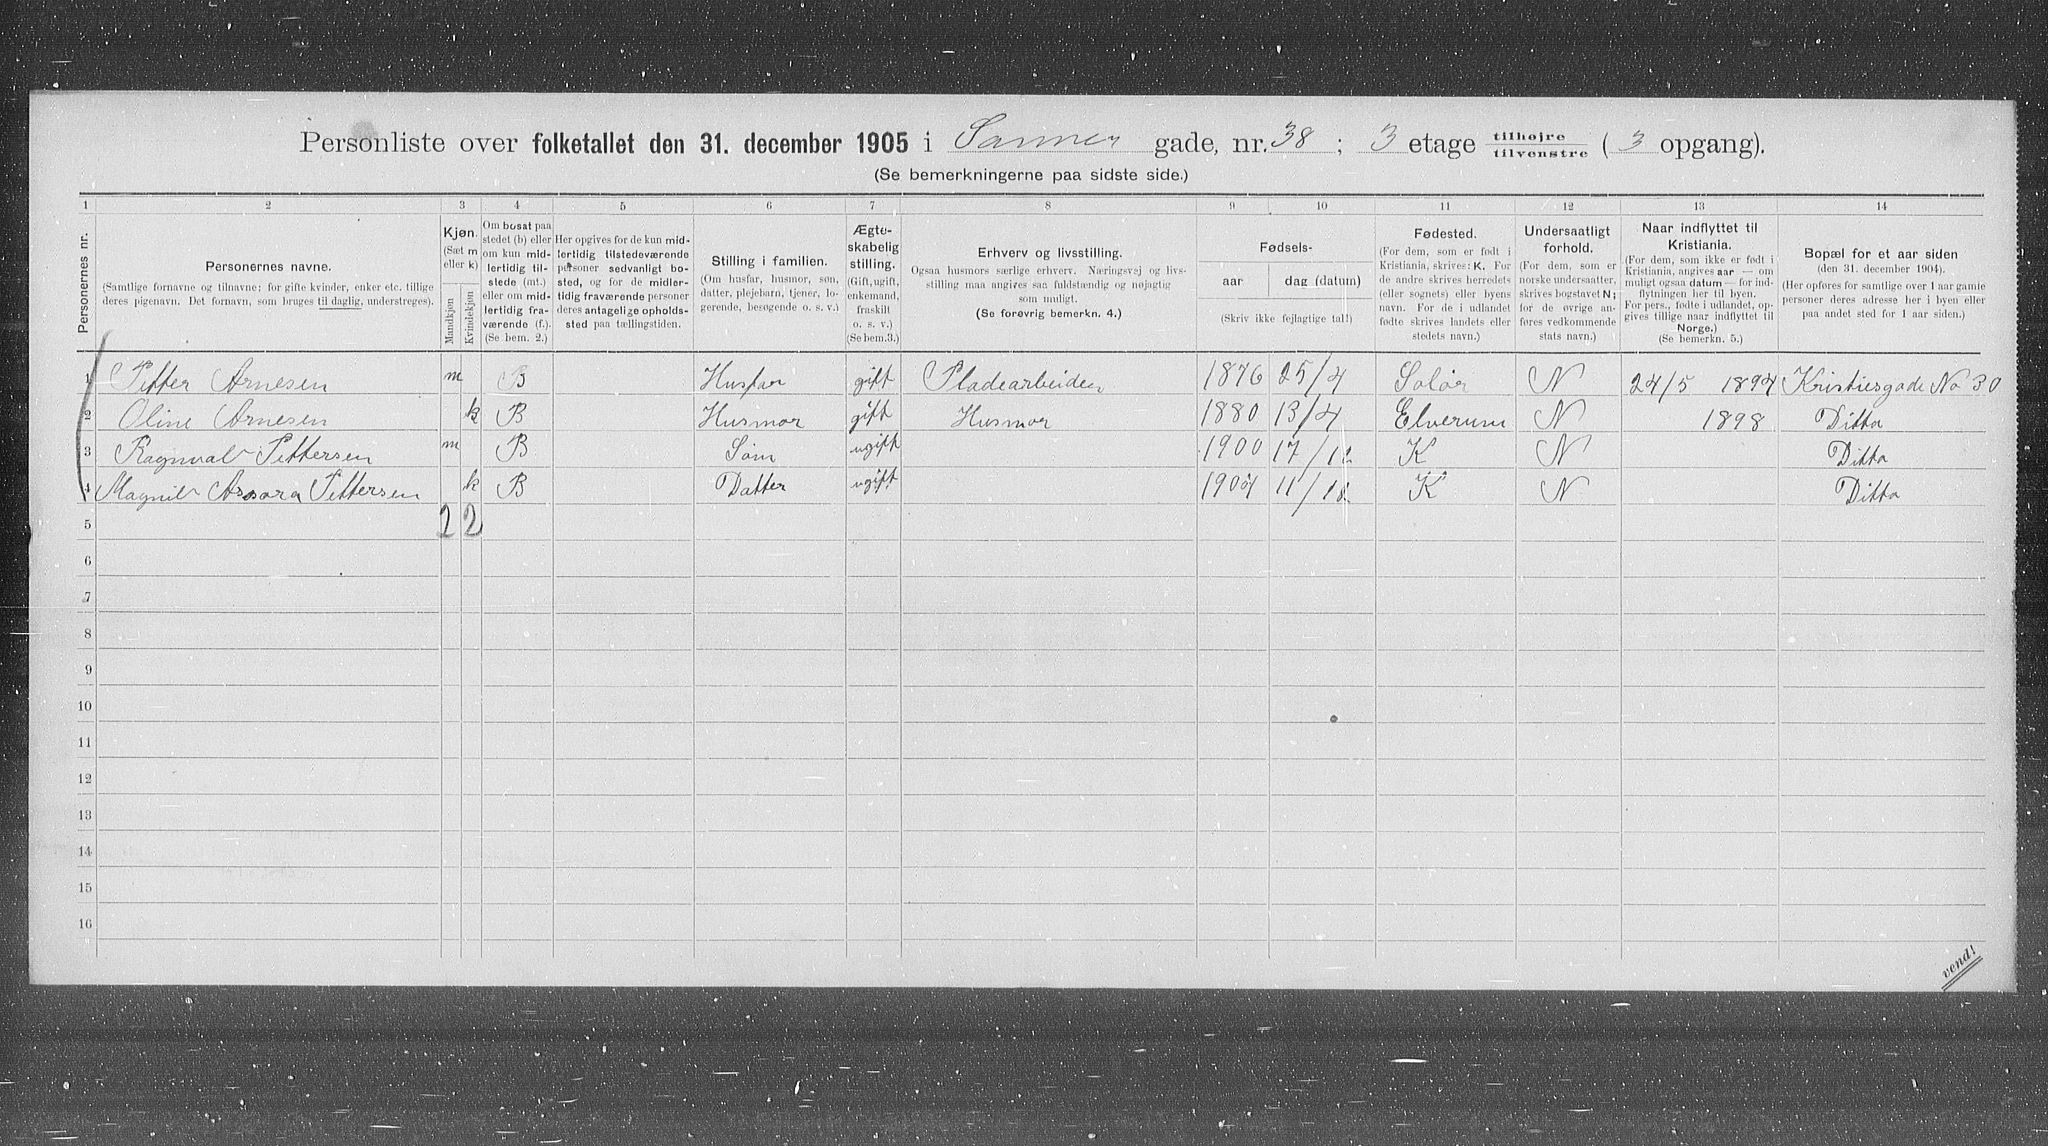 Personliste over folketallet den 31. december 1905 i Sanner gade, nr. 38 ; 3 etage tilhøjre tilvenstre ( 3 opgang).
(Se bemerkningerne paa sidste side.)
1 2 3 4 5 6 7 8 9 10 11 12 13 14
Personernes nr.
Personernes navne.
(Samtlige fornavne og tilnavne; for gifte kvinder, enker etc. tillige
deres pigenavn. Det fornavn, som bruges til daglig, understreges).
Kjøn.
(Sæt m
eller k)
Mandkjøn
Kvindekjøn
Om bosat paa
stedet (b) eller
om kun mid-
lertidig til-
stede (mt.)
eller om mid-
lertidig fra-
værende (f.).
(Se bem. 2.)
Her opgives for de kun mid-
lertidig tilstedeværende
personer sedvanligt bo-
sted, og for de midler-
tidig fraværende personer
deres antagelige opholds-
sted paa tællingstiden.
Stilling i familien.
(Om husfar, husmor, søn,
datter, plejebarn, tjener, lo-
gerende, besøgende o. s. v.)
Ægte-
skabelig
stilling.
(Gift, ugift,
enkemand,
fraskilt
o. s. v.)
(Se bem.3.)
Erhverv og livsstilling.
Ogsaa husmors særlige erhverv. Næringsvej og livs-
stilling maa angives saa fuldstændig og nøjagtig
som muligt.
(Se forøvrig bemerkn. 4.)
Fødsels-
aar dag (datum)
(Skriv ikke fejlagtige tal!)
Fødested.
(For dem, som er født i
Kristiania, skrives: K. For
de andre skrives herredets
(eller sognets) eller byens
navn. For de i udlandet
fødte skrives landets eller
stedets navn.)
Undersaatligt
forhold.
(For dem, som er
norske undersaatter,
skrives bogstavet N;
for de øvrige an-
føres vedkommende
stats navn.)
Naar indflyttet til
Kristiania.
(For dem, som ikke er født i
Kristiania, angives aar — om
muligt ogsaa datum — for ind-
flytningen her til byen.
For pers., fødte i udlandet, op-
gives tillige naar indflyttet til
Norge.)
(Se bemerkn. 5.)
Bopæl for et aar siden
(den 31. december 1904).
(Her opføres for samtlige over 1 aar gamle
personer deres adresse her i byen eller
paa andet sted for 1 aar siden.)
1 Petter Arnesen m B Husfar gift Pladearbeider 1876 25/4 Solør N 24/5 1894 Kristiesgade No 30
2 Oline Arnesen k B Husmor gift Husmor 1880 13/4 Elverum N 1898 Ditto
3 Ragnvald Pettersen m B Søn ugift 1900 17/12 K N Ditto
4 Magnild Pettersen k B Datter ugift 1904 11/12 K N Ditto
5 2 2
6
7
8
9
10
11
12
13
14
15
16
vend!